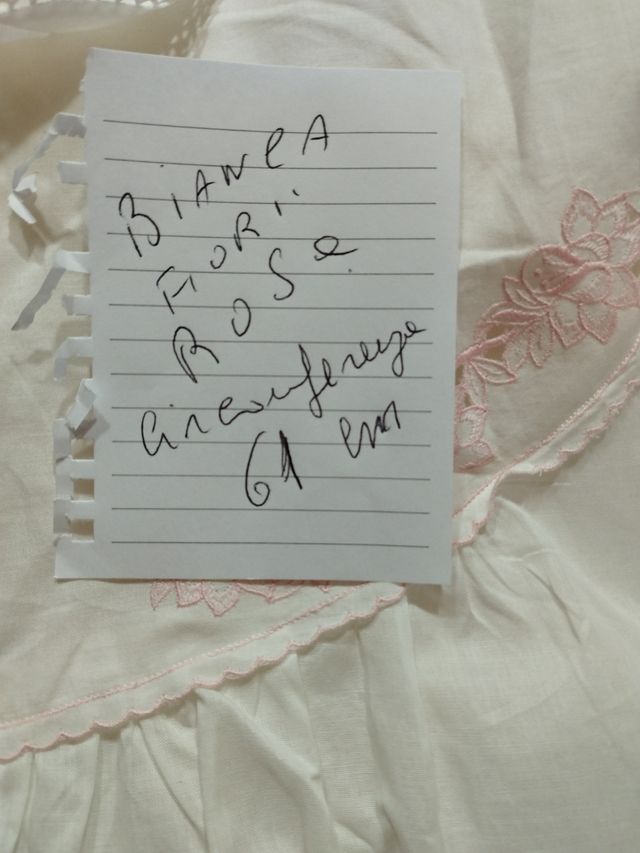 BIANCA
FIORI
ROSE
Circonferenza
61 cm